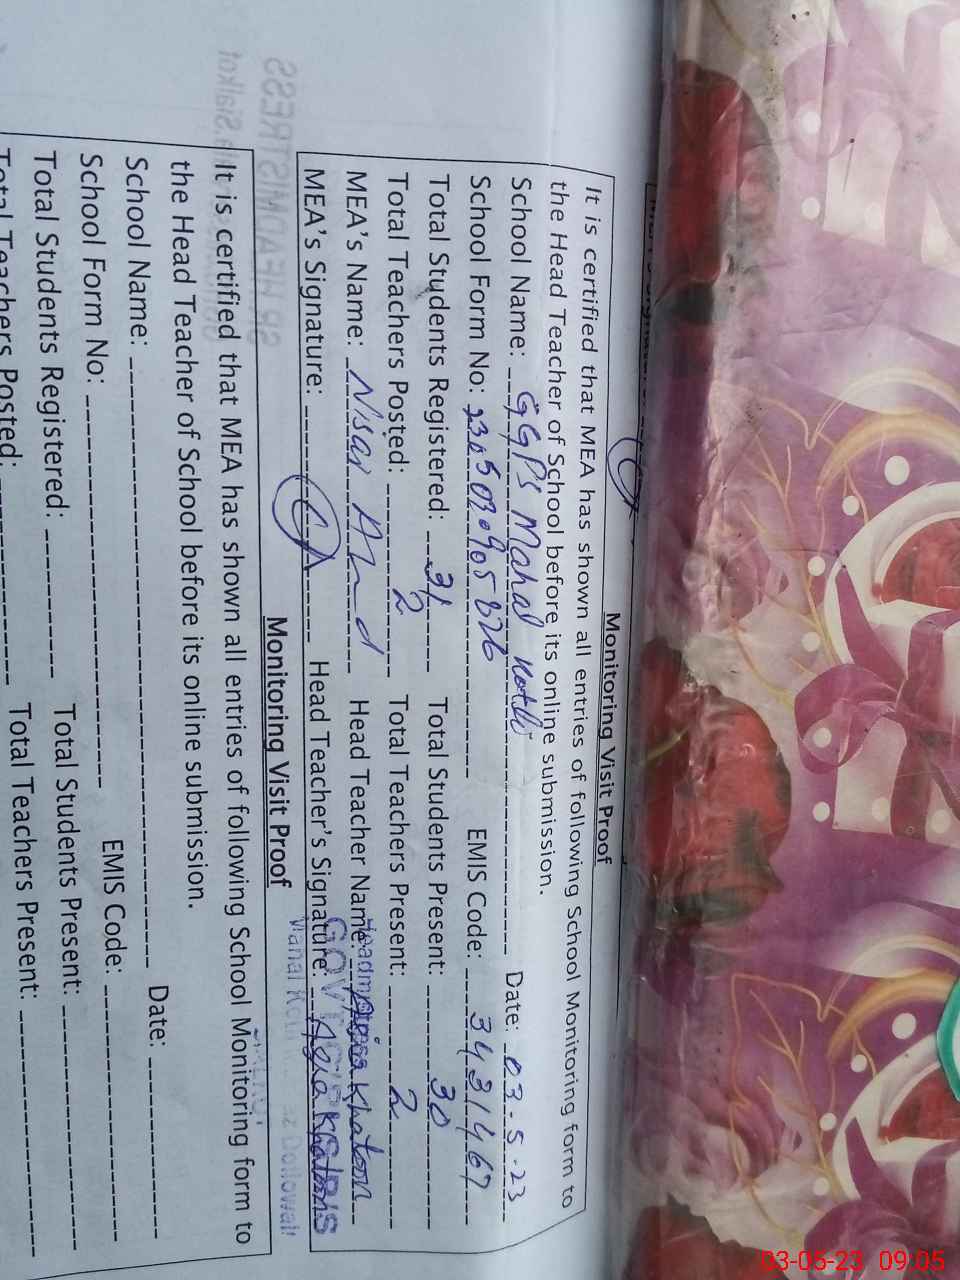 Monitoring Visit Proof
It is certified that MEA has shown all entries of following School Monitoring form to
the Head Teacher of School before its online submission.
School Name: GGPS Mahal Kotli Date: 03-5-23
School Form No: EMIS Code: 3431467
Total Students Registered: 31 Total Students Present: 30
Total Teachers Posted: 2 Total Teachers Present: 2
MEA's Name: Nisar Ahmad Head Teacher Name: Khatoon
MEA's Signature: Head Teacher's Signature:
Monitoring Visit Proof
It is certified that MEA has shown all entries of following School Monitoring form to
the Head Teacher of School before its online submission.
School Name: Date:
School Form No: EMIS Code:
Total Students Registered: Total Students Present:
Total Teachers Posted: Total Teachers Present:
03-05-23 09:05